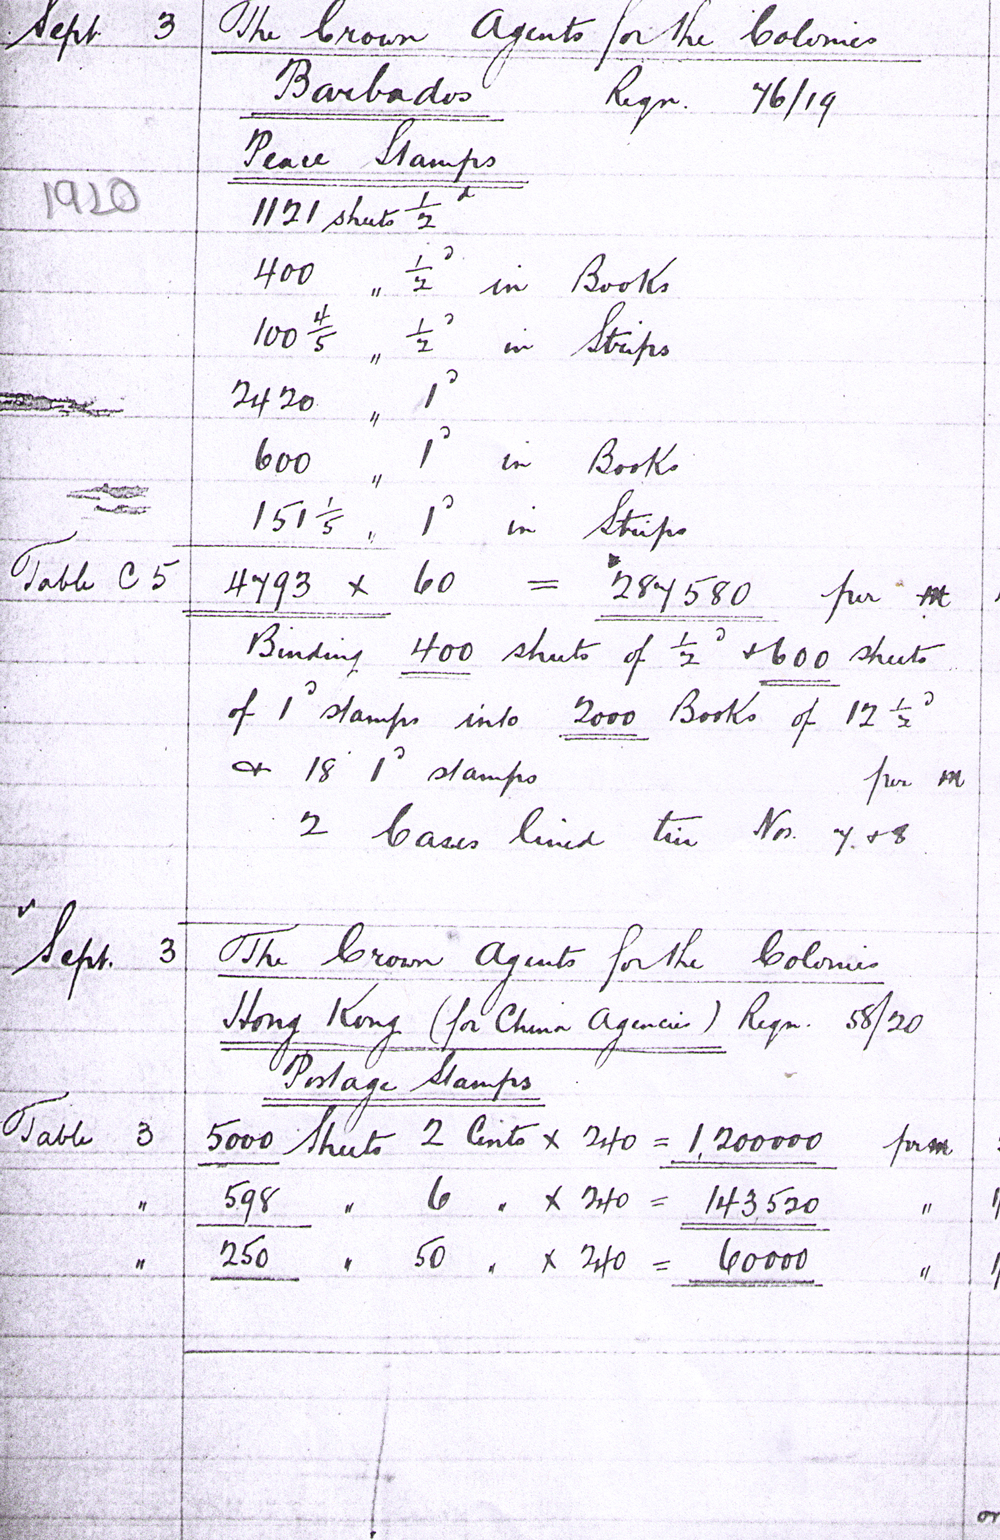 Sept. 3 The Crown Agents for the Colonies
Barbados Reqn. 76/19
Peace Stamps
1920
1121 sheets ½ d
400 " ½ d in Books
100 4/5 " ½ d in Strips
2420 " 1 d
600 " 1 d in Books
151 1/5 " 1 d in Strips
Table C 5 4793 x 60 = 287580 per m
Binding 400 sheets of ½ d + 600 sheets
of 1 d stamps into 2000 Books of 12 ½ d
& 18 1 d stamps per m
2 Cases lined tin Nos. 7 + 8
Sept. 3 The Crown Agents for the Colonies
Hong Kong (for China Agencies) Reqn. 58/20
Postage Stamps
Table 3 5000 Sheets 2 Cents x 240 = 1,200000 per m
" 598 " 6 " x 240 = 143,520 "
" 250 " 50 " x 240 = 60000 "